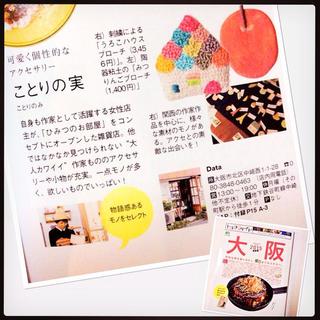 可愛く個性的な
アクセサリー
ことりの実
ことりのみ
自身も作家として活躍する女性店
主が、「ひみつのお部屋」をコン
セプトにオープンした雑貨店。他
ではなかなか見つけられない“大
人カワイイ”作家もののアクセサ
リーや小物が充実。一点モノが多
く、欲しいものでいっぱい！
右）刺繍による
「うろこハウス
ブローチ（3,45
6円）」。左）陶
器粘土の「みつ
りんごブローチ
（1,400円）」
右）関西の作家作
品を中心に、様々
な素材のモノがあ
る。アクセとの素
敵な出会いを！
物語感ある
モノをセレクト
Data
大阪市北区中崎西1-1-28
80-3848-0463（店内用電話）
13:00～19:00 休月曜（その
他不定休）交地下鉄谷町線中崎
町駅から徒歩1分 Pなし
付録P15 A-3
大阪